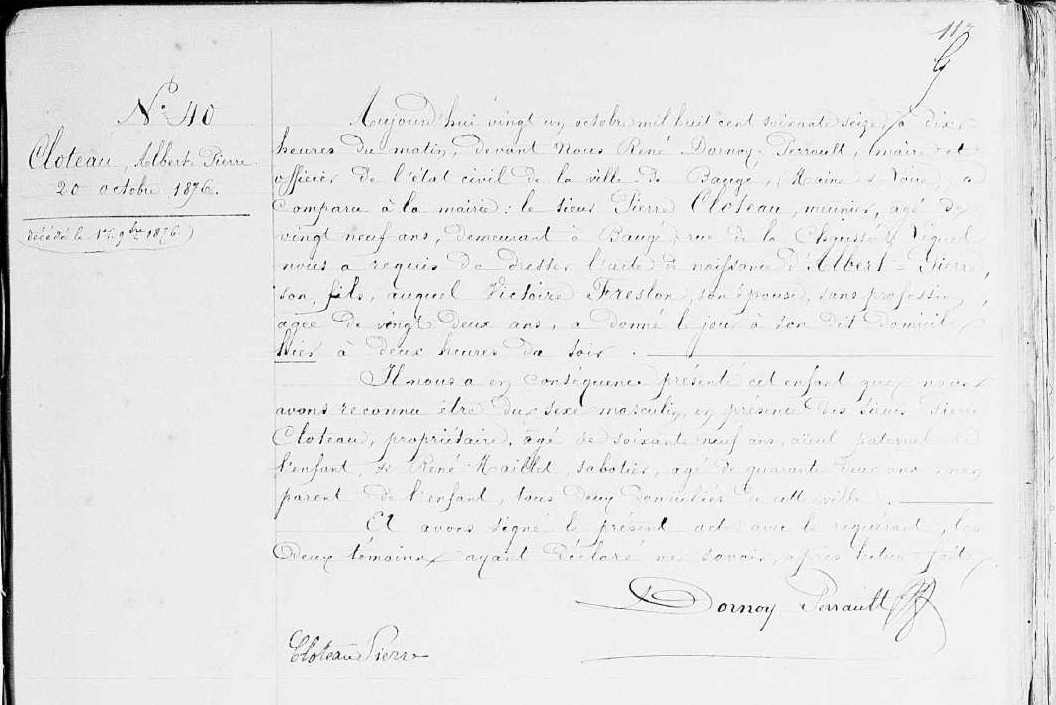 N° 40
Cloteau, Albert-Pierre
20 octobre 1876.
décédé le 1er 9bre 1876
Aujourd'hui vingt un octobre mil huit cent soixante seize, à dix
heures du matin, devant Nous René Dornoy-Perrault, maire et
officier de l'état civil de la ville de Baugé, (Maine & Loire) a
comparu à la mairie : le sieur Pierre Cloteau, meunier, âgé de
vingt neuf ans, demeurant à Baugé, rue de la Chaussée, lequel
nous a requis de dresser l'acte de naissance d'Albert-Pierre,
son fils, auquel Victoire Freslon, son épouse, sans profession,
âgée de vingt deux ans, a donné le jour à son dit domicile
hier à deux heures du soir.
Il nous a en conséquence présenté cet enfant que nous
avons reconnu être du sexe masculin, en présence des sieurs Pierre
Cloteau, propriétaire, âgé de soixante neuf ans, aïeul paternel de
l'enfant, & René Maillet, sabotier, âgé de quarante deux ans, non
parent de l'enfant, tous deux domiciliés de cette ville.
Et avons signé le présent acte avec le requérant, les
deux témoins ayant déclaré ne savoir, après lecture faite.
Dornoy Perrault
Cloteau Pierre